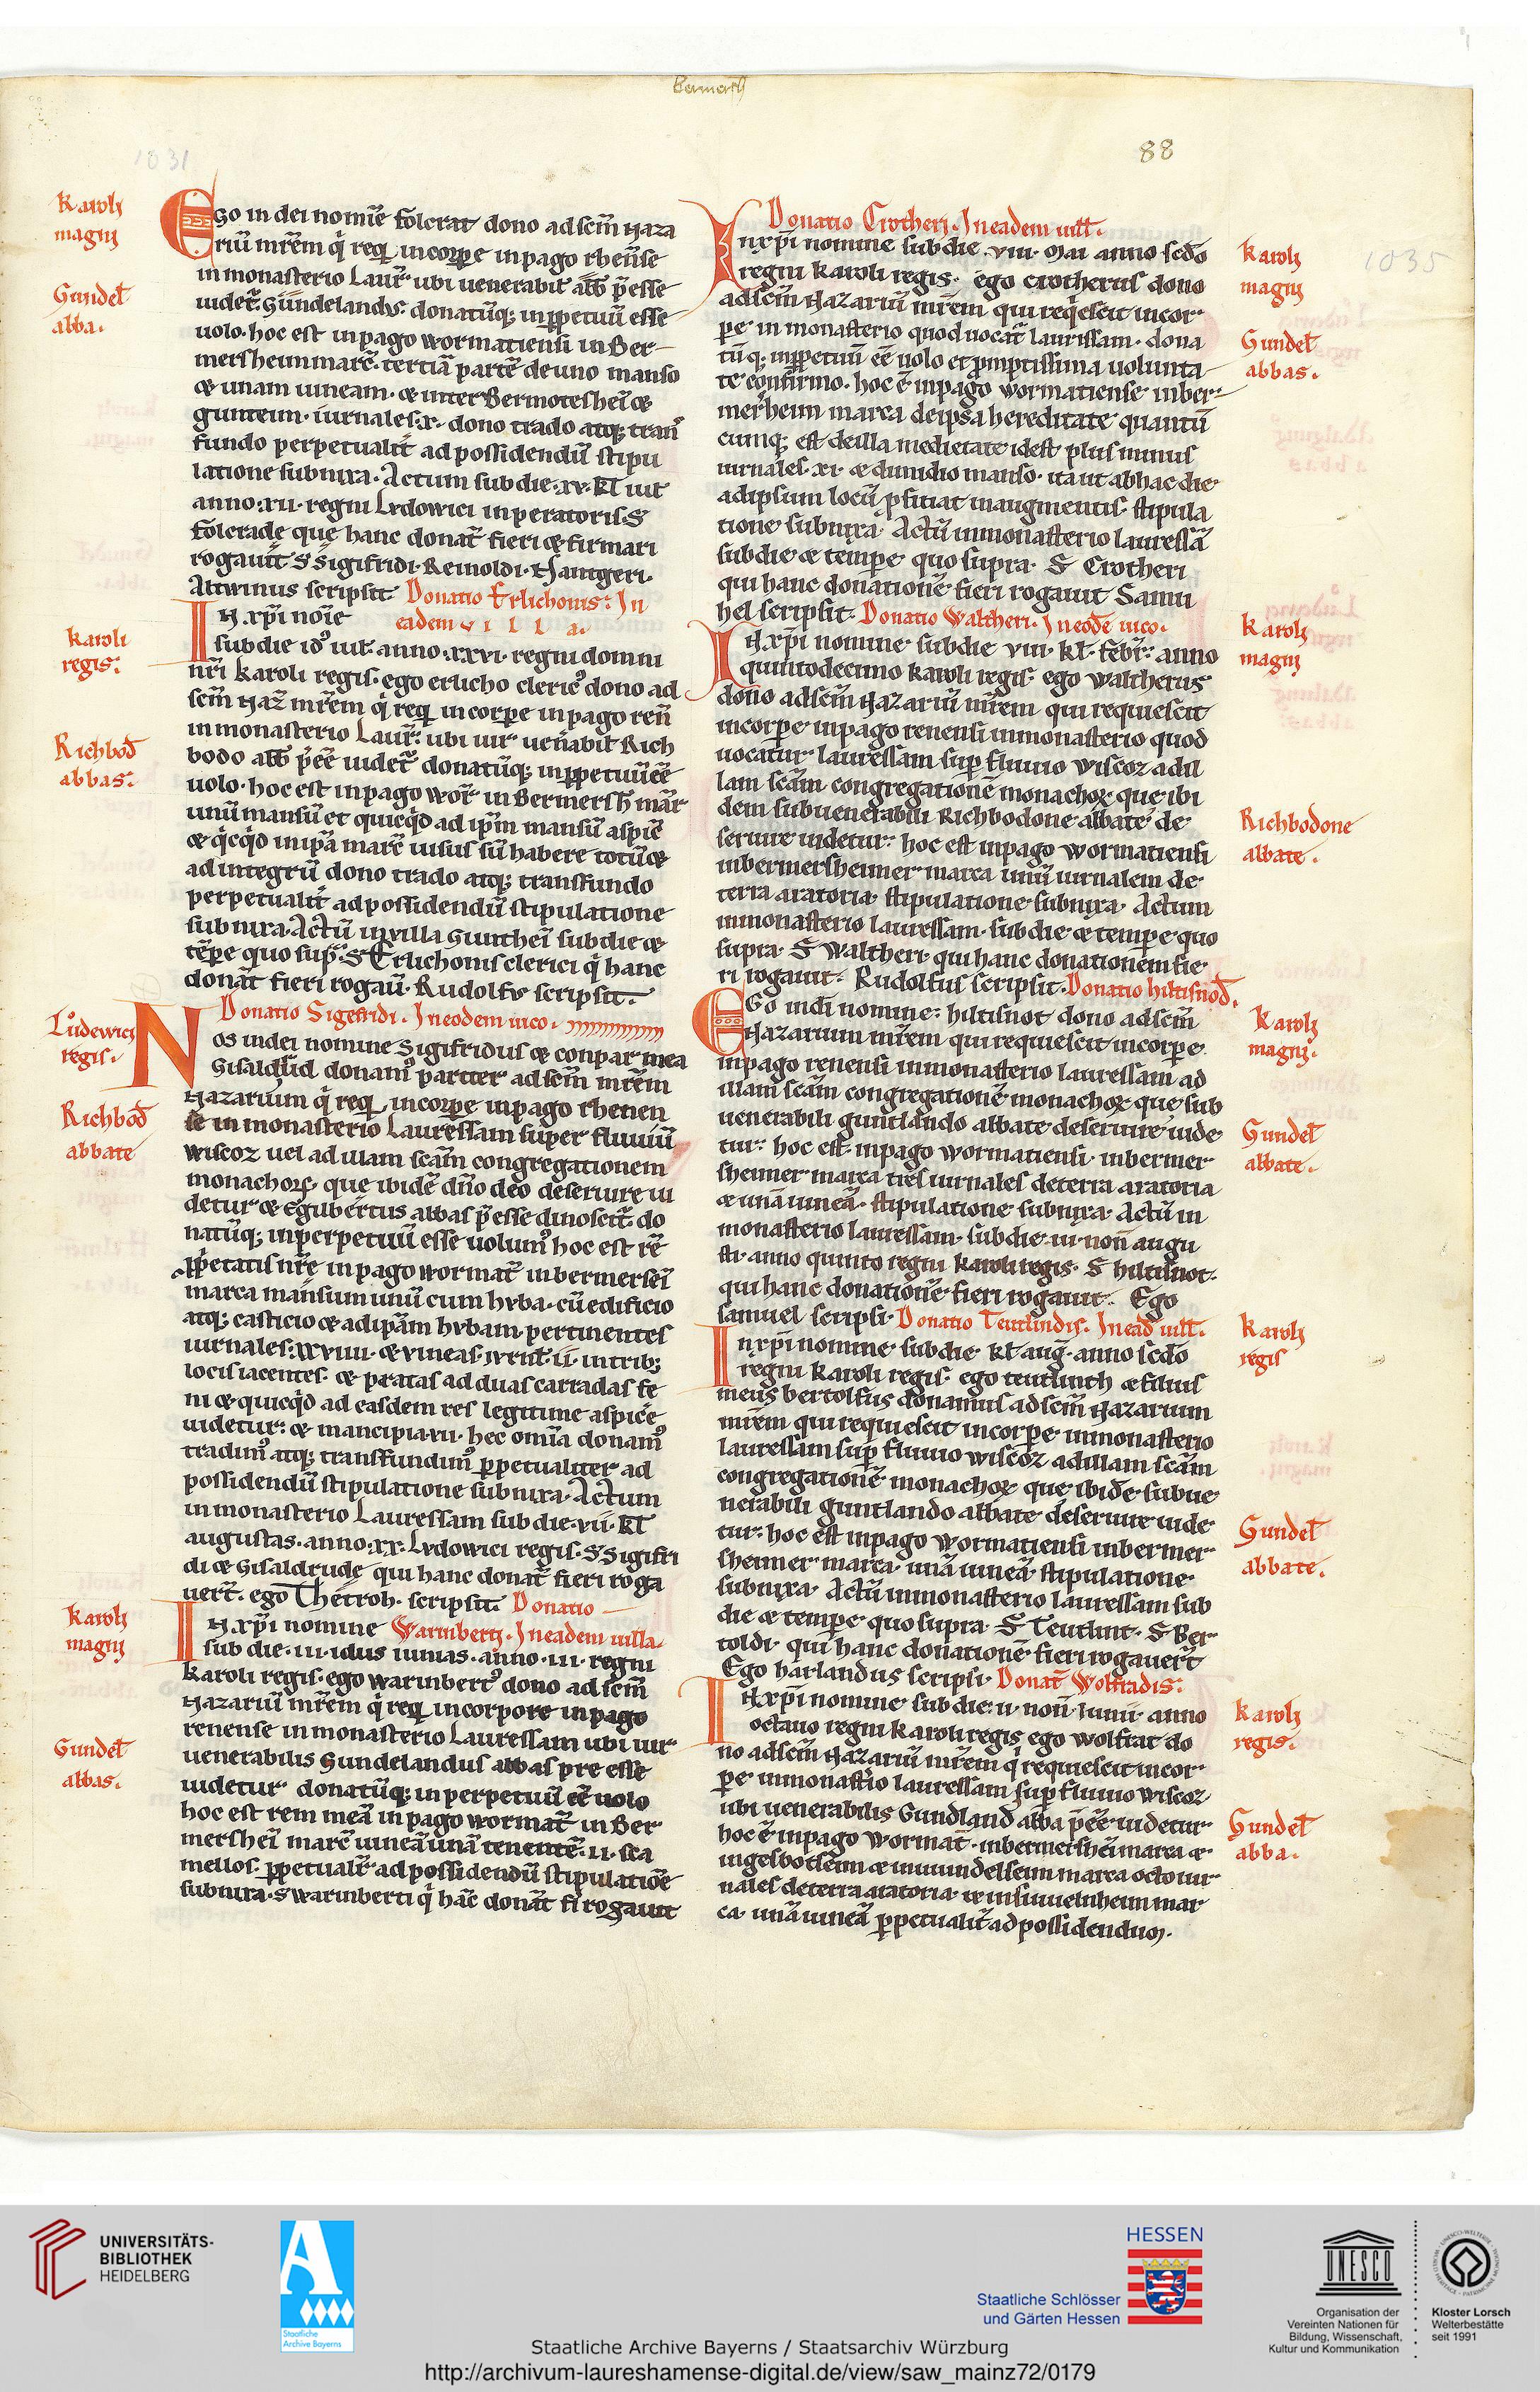 Bermersh
1031
88
Karoli
magni
Gundel̄
abba.
Ego in dei nomīe folcrat dono ad sc̄m Naza
riū mr̄em q̇ req̄ in corꝑe in pago rhen̄se
in monasterio Laur̄ ubi uenerabil̄ abb̄ p̄esse
uidet̄. Gundelandus. donatūq; in ꝑpetuū esse
uolo. hoc est in pago wormatiensi in Ber
mersheim marc̄. tertiā partē de uno manso
& unam uineam. & inter Bermotesheī &
gunteim. iurnales. x. dono trado atq; tran̄
fundo perpetualit̄ ad possidendū stipu
latione subnixa. Actum sub die. xv. kl̄ iul̄
anno. xii. regni Lvdowici inperatoris. S
folcrade que hanc donat̄ fieri & firmari
rogauit̄ S Sigifridi. Reinoldi. Hantgeri.
Altwinus scripsit. Donatio Erlichonis. In
eadem v i l l a.
Karoli
regis.
Richbod̄
abbas.
In xp̄i noīe
sub die id̄ iul̄. anno. xxvi. regni domni
nr̄i karoli regis. ego erlicho cleric᷒ dono ad
sc̄m Naz̄ mr̄em q̇ req̄ in corꝑe in pago ren̄
in monasterio Laur̄. ubi uir uen̄abil̄ Rich
bodo abb̄ p̄eē̄ uidet̄ donatūq; in ꝑpetuū eē̄
uolo. hoc est in pago wor̄ in Bermersh̄ mar̄
unū mansū et quicq̇d ad ip̄m mansū aspic̄
& q̇cq̇d in ip̄a marc̄ uisus sū habere totū &
ad integrū dono trado atq; transfundo
perpetualit̄ ad possidendū stipulatione
subnixa. Actū in villa Guntheī sub die &
tēꝑe quo sup̄. S Erlichonis clerici q̇ hanc
donat̄ fieri rogau̅. Rudolf᷒ scripsit.
Donatio Sigefridi. In eodem uico.
Ludewici
regis.
Richbod̄
abbate
Nos in dei nomine Sigifridus & conpar mea
Gisaldrud donam᷒ pariter ad sc̄m mr̄em
Nazarium q̇ req̄ in corꝑe in pago rhenen
se in monasterio Lauressam super fluuiū
wiscoz uel ad illam scām congregationem
monachorꝝ. que ibidē dn̄o deo deseruire ui
detur & Egilbertus abbas p̄esse dinoscit̄ do
natūq; in perpetuū esse uolum᷒ hoc est rē
ꝓp̄etatis nr̄e in pago wormat̄ in bermersei̅
marca mansum unū cum hvba. cū edificio
atq; casticio & ad ip̄am hvbam pertinentes
iurnales. xxviiii. & vineas. ivrnl̄. ii. in trib;
locis iacentes. & pratas ad duas carradas fe
ni & quicq̇d ad easdem res legitime aspic̄e
uidetur. & mancipia. vii. hec om̄ia donam᷒
tradim᷒ atq; transfundim᷒ ꝑpetualiter ad
possidendū stipulatione subnixa. Actum
in monasterio Lauressam sub die. vii. kl̄
augustas. anno. xx. Lvdowici regis. S Sigifri
di & Gisaldrude qui hanc donat̄ fieri roga
uer̄t. ego Thetroh. scripsit. Donatio
Warinberti. In eadem uilla.
Karoli
magni
Gundel̄
abbas.
In xp̄i nomine
sub die. iii. idus iunias. anno. iii. regni
karoli regis. ego warinbert᷒ dono ad sc̄m
Nazariū mr̄em q̇ req̄ in corpore in pago
renense in monasterio Lauressam ubi uir
uenerabilis Gundelandus abbas preesse
uidetur donatūq; in perpetuū eē̄ uolo
hoc est rem meā in pago wormat̄ in Ber
mersheī marc̄ uineā unā tenentē. ii. sca
mellos. ꝑpetualit̄ ad possidendū stipulatiōe
subnixa. S warinberti q̇ hāc donat̄ fi rogauit
Donatio Crotheri. In eadem uill̄.
1035
Karoli
magni
Gundel̄
abbas.
In xp̄i nomine sub die. viii. Mai anno scd̄o
regni karoli regis. ego crotherus dono
ad sc̄m Nazariū mr̄em qui reqͥescit in cor
ꝑe in monasterio quod uocat̄ laurissam. dona
tūq; in ꝑpetuū eē̄ uolo et ꝓmptissima uolunta
te confirmo. hoc ē̄ in pago wormatiense in ber
merheim marca de ipsa hereditate quantū
cumq; est de illa medietate id est plus minus
iurnales. xi. & dimidio manso. ita ut ab hac die
ad ipsum locū ꝓficiat in augmentis stipula
tione subnixa. Actū in monasterio lauressā
sub die & tempe quo supra. S Crotheri
qui hanc donationē fieri rogauit Samu
hel scripsit. Donatio Waltheri. In eodē uico.
Karoli
magni
Richbodone
abbate.
In xp̄i nomine sub die viii. kl. febr̄. anno
quintodecimo karoli regis ego waltherus
dono ad sc̄m Nazariū mr̄em qui requiescit
in corꝑe in pago renensi in monasterio quod
uocatur lauressam sup̄ fluuio wiscoz ad il
lam scām congregationē monachoꝝ que ibi
dem sub uenerabili Richbodone abbate de
seruire uidetur. hoc est in pago wormatiensi
in bermersheimer marca unū iurnalem de
terra aratoria stipulatione subnixa. Actum
in monasterio lauressam. sub die & tempe quo
supra. S Waltheri. qui hanc donationem fie
ri rogauit. Rudolfus scripsit. Donatio hiltisnod̄.
Karoli
magni.
Gundel̄
abbate.
Ego in dī nomine. hiltisnot dono ad sc̄m
Nazarium mr̄em qui requiescit in corꝑe
in pago renensi in monasterio lauressam ad
illam scām congregationē monachoꝝ que sub
uenerabili guntlando abbate deseruire uide
tur. hoc est in pago wormatiensi. in bermer
sheimer marca tres iurnales de terra aratoria
& unā uineā. stipulatione subnixa. Actū in
monasterio lauressam. sub die. iii. non̄ augu
sti. anno quinto regni karoli regis. S hiltisnot.
qui hanc donationē fieri rogauit. Ego
samuel scripsi. Donatio Teutlindis. In ead̄ uill̄.
Karoli
regis
Gundel̄
abbate.
In xp̄i nomine sub die kl̄ aug̅. anno scd̄o
regni karoli regis. ego teutlinth & filius
meus bertolfus donamus ad sc̄m Nazarium
mr̄em qui requiescit in corꝑe in monasterio
lauressam sup̄ fluuio wiscoz ad illam scām
congregationē monachoꝝ que ibidē sub ue
nerabili guntlando abbate deseruire uide
tur. hoc est in pago wormatiensi in bermer
sheimer marca. unā uineā stipulatione
subnixa. Actū in monasterio lauressam sub
die & tempe quo supra. S Teutlint. S Ber
toldi. qui hanc donationē fieri rogauer̄t
Ego harlandus scripsi. Donat̄ Wolfradis.
Karoli
regis.
Gundel̄
abba.
In xp̄i nomine sub die. ii. non̄ Iunii. anno
octauo regni karoli regis ego wolfrat do
no ad sc̄m Nazariū mr̄em q̇ requiescit in cor
ꝑe in monastīo lauressam sup̄ fluuio wiscoz
ubi uenerabilis Gundland̄ abba p̄eē̄ uidetur
hoc ē̄ in pago wormat̄. in bermersheī marca &
ingelbotsheim & in mundelsheim marca octo iur
nales de terra aratoria & in siuuelnheim mar
ca unā uineā ꝑpetualit̄ ad possidendum.
UNIVERSITÄTS-
BIBLIOTHEK
HEIDELBERG
Staatliche
Archive Bayerns
HESSEN
Staatliche Schlösser
und Gärten Hessen
UNESCO
Organisation der
Vereinten Nationen für
Bildung, Wissenschaft,
Kultur und Kommunikation
Kloster Lorsch
Welterbestätte
seit 1991
Staatliche Archive Bayerns / Staatsarchiv Würzburg
http://archivum-laureshamense-digital.de/view/saw_mainz72/0179